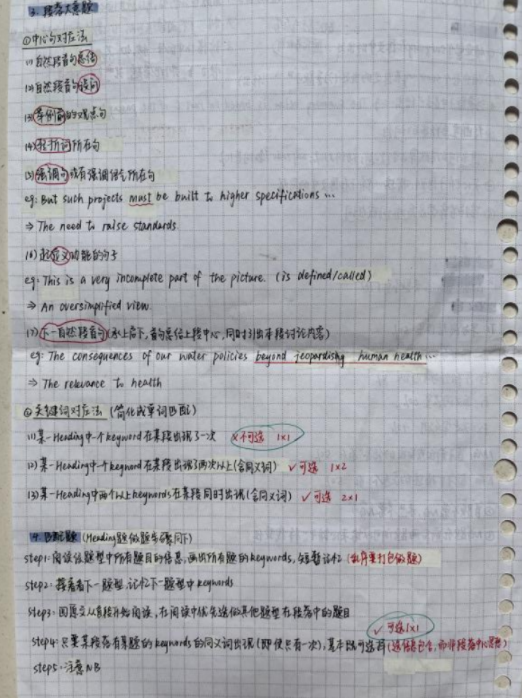 3. 段落大意题
①中心句对应法
(1) 自然段首句总结
(2) 自然段首句设问
(3) 举例前的观点句
(4) 转折词所在句
(5) 强调句或有强调词句所在句
eg: But such projects must be built to higher specifications ...
⇒ The need to raise standards
(6) 起定义功能的句子
eg: This is a very incomplete part of the picture. (is defined/called)
⇒ An oversimplified view
(7) 下一自然段首句(承上启下,首句总结上段中心,同时引出本段讨论内容)
eg: The consequences of our water policies beyond jeopardising human health...
⇒ The relevance to health
②关键词对应法 (简化成单词匹配)
(1) 某一Heading中一个keyword在某段出现了一次 ×不可选 1×1
(2) 某一Heading中一个keyword在某段出现了两次以上(含同义词) ✓可选 1×2
(3) 某一Heading中两个以上keywords在某段同时出现(含同义词) ✓可选 2×1
4. 匹配题 (Heading题做题步骤同下)
step1: 阅读该题型中所有题目的信息,画出所有题的keywords,短暂记忆
step2: 接着看下一题型,记忆下一题型中keywords
step3: 回原文从首段开始阅读,在阅读中优先选做其他题型在段落中的题目
✓可选1×1
step4: 只要某段落有某题的keywords的同义词出现(即使只有一次),基本就可选择
step5: 注意NB